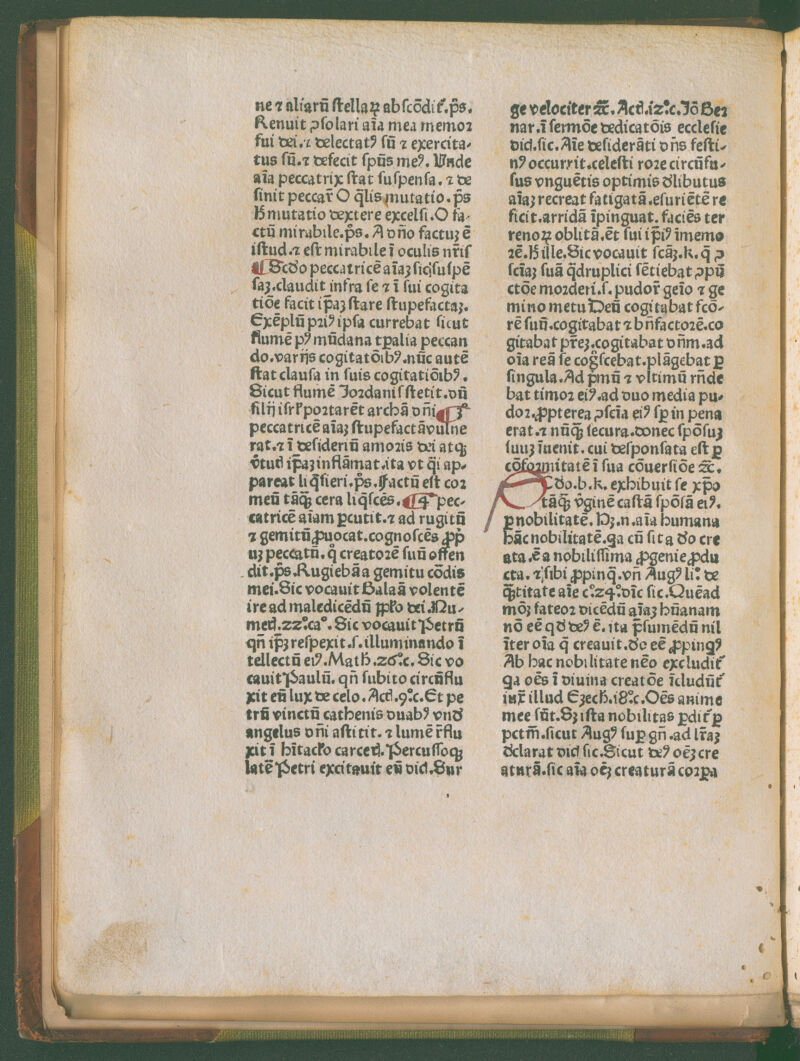 ne ⁊ aliarū ſtellaꝝ abſcōdit̄. p̄s.
Renuit ꝯſolari aīa mea memoꝛ
fui dei. ⁊ delectatꝰ ſū ⁊ exercita-
tus ſū. ⁊ defecit ſpūs meꝰ. Unde
aīa peccatrix ſtat ſuſpenſa. ⁊ de
ſinit peccar̄ O q̄lis mutatio. p̄s
H̄ mutatio dextere excelſi. O fa-
ctū mirabile. p̄s. A dn̄o factuꝫ ē
iſtud. ⁊ eſt mirabile ī oculis nr̄iſ
¶ Scd̄o peccatricē aīaꝫ ſic ſuſpē
ſaꝫ. claudit infra ſe ⁊ ī ſui cogita
tiōe facit ip̄aꝫ ſtare ſtupefactaꝫ.
Exēplū pꝛiꝰ ipſa currebat ſicut
flumē pꝰ mūdana tꝑalia peccan
do. varijs cogitatōibꝰ. nūc autē
ſtat clauſa in ſuis cogitatiōibꝰ.
Sicut flumē Joꝛdaniſ ſtetit. dū
filij iſrl̄ poꝛtarēt archā dn̄i ¶ 3°
peccatricē aīaꝫ ſtupefactā vulne
rat. ⁊ ī deſideriū amoꝛis dei atqꝫ
v̄tud ip̄aꝫ inflāmat. ita vt q̄ſi ap-
pareat liq̄fieri. p̄s. Factū eſt coꝛ
meū tāqꝫ cera liq̄ſcēs. ¶ 4° pec-
catricē aīam ꝑcutit. ⁊ ad rugitū
⁊ gemitū ꝓuocat. cognoſcēs ꝓpꝛ̄
uꝫ peccatū. q̄ creatoꝛē ſuū offen
dit. p̄s. Rugiebā a gemitu cōdis
mei. Sic vocauit Balaā volentē
ire ad maledicēdū ppl̄o dei. Nu-
meꝝ. 22°. ca°. Sic vocauit Petrū
qn̄ ip̄ꝫ reſpexit. ſ. illuminando ī
tellectū eiꝰ. Math. 26°. c. Sic vo
cauit Paulū. qn̄ ſubito circūflu
xit eū lux de celo. Actꝝ. 9°. c. Et pe
trū vinctū cathenis duabꝰ vnꝰ
angelus dn̄i aſtitit. ⁊ lumē r̄flu
xit ī hītacl̄o carceꝝ. Percuſſoqꝫ
latē Petri excitauit eū dicꝭ. Sur
ge velociter ⁊c̄. Actꝝ. 12°. c. Jō Ber
nar. ī ſermōe dedicatōis eccleſie
dicꝭ. ſic. Aīe deſiderāti dn̄s feſti-
nꝰ occurrit. celeſti roꝛe circūfu-
ſus vnguētis optimis dl̄ibutus
aīaꝫ recreat fatigatā. eſuriētē re
ficit. arridā īpinguat. faciēs ter
renoꝝ oblitā. ēt ſui ip̄iꝰ īmemo
ꝛē. H̄ ille. Sic vocauit ſcāꝫ. k. q̄ ꝯ
ſcīaꝫ ſuā q̄druplici ſētiebat ꝯpū
ctōe moꝛderi. ſ. pudoꝛ̄ geīo ⁊ ge
mino metu Deū cogitabat ſcō-
rē ſuū. cogitabat ⁊ bn̄factoꝛē. co
gitabat pr̄eꝫ. cogitabat dn̄m. ad
oīa reā ſe cog̊ſcebat. plāgebat ꝑ
ſingula. Ad pmū ⁊ vltimū rn̄de
bat timoꝛ eiꝰ. ad duo media pu-
doꝛ. ꝓpterea ꝯſcīa eiꝰ ſꝑ in pena
erat. ⁊ nūqꝫ ſecura. donec ſpōſuꝫ
ſuuꝫ īuenit. cui deſponſata eſt ꝑ
cōfoꝛmitatē ī ſua cōuerſiōe ⁊c̄.
Scd̄o. b. k. exhibuit ſe xp̄o
tāqꝫ v̄ginē caſtā ſpōſā eiꝰ.
ꝑ nobilitatē. Hꝫ. n. aīa humana
hāc nobilitatē. qa cū ſit a do cre
ata. ē a nobiliſſima ꝓgenie ꝓdu
cta. ⁊ ſibi ꝓpinq̄. vn̄ Augꝰ li°. de
q̄titate aīe c°. 24°. dīc ſic. Quēad
mōꝫ fateoꝛ dicēdū aīaꝫ hūanam
nō eē qd̄ deꝰ ē. ita p̄ſumēdū nil
īter oīa q̄ creauit. do eē ꝓpinqꝰ
Ab hac nobilitate nēo excludit̄
qa oēs ī diuina creatōe īcludūt̄
iux̄ illud Ezech. 18°. c. Oēs anime
mee ſūt. Sꝫ iſta nobilitas ꝑdit̄ ꝑ
pctm̄. ſicut Augꝰ ſuꝑ gn̄. ad lr̄aꝫ
dc̄larat dicꝭ ſic. Sicut deꝰ oēꝫ cre
aturā. ſic aīa oēꝫ creaturā coꝛꝑa